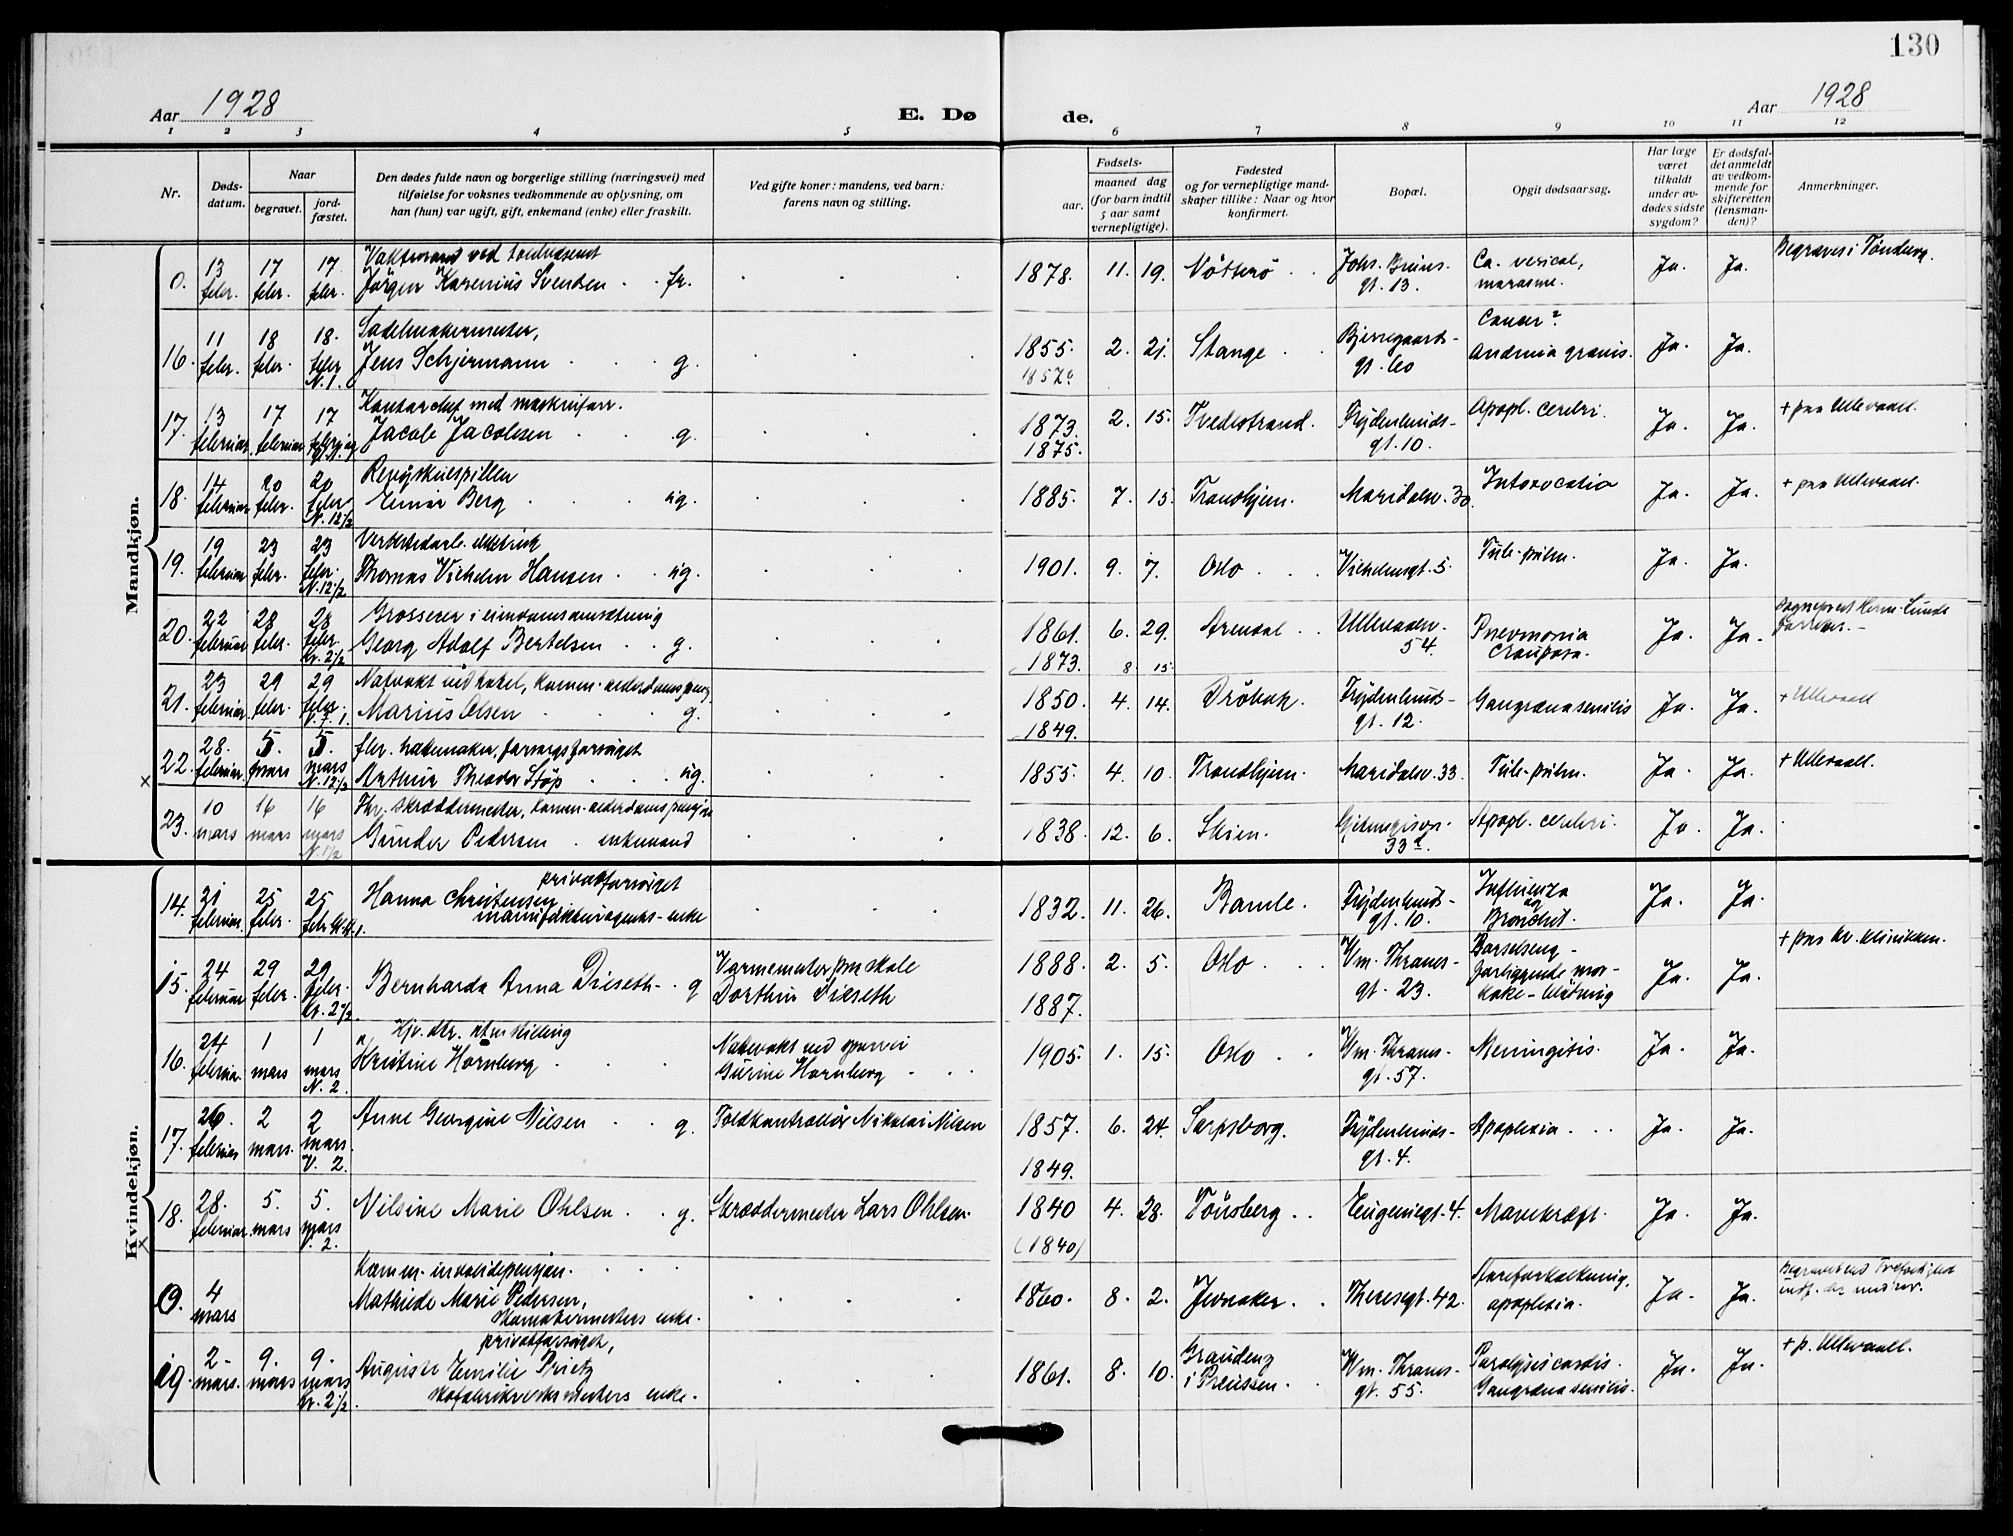 130
Aar 1928
E. Dø
de.
Aar 1928
1 2 3 4 5 6 7 8 9 10 11 12
Nr.
Døds-
datum.
Naar
begravet.
jord-
fæstet.
Den dødes fulde navn og borgerlige stilling (næringsvei) med
tilføielse for voksnes vedkommende av oplysning, om
han (hun) var ugift, gift, enkemand (enke) eller fraskilt.
Ved gifte koner: mandens, ved barn:
farens navn og stilling.
Fødsels-
aar.
maaned dag
(for barn indtil
5 aar samt
vernepligtige).
Fødested
og for vernepligtige mand-
skaper tillike: Naar og hvor
konfirmert.
Bopæl.
Opgit dødsaarsag.
Har læge
været
tilkaldt
under av-
dødes sidste
sygdom?
Er dødsfal-
det anmeldt
av vedkom-
mende for
skifteretten
(lensman-
den)?
Anmerkninger.
Mandkjøn.
0. 13 febr. 17 febr. 17 febr.
Jørgen Karenius Svendsen fr.
1878. 11. 19. Nøtterø Johs. Bruns- gt. 13. Ca. vesical, marasme. Ja. Ja.
16. 11 febr. 18 febr. 18. febr. N. 1.
Sadelmakermester,
Jens Schjermann g.
1855. 2. 21. Stange Bjerregaards- gt. 60 Cancer? Anæmia gravis. Ja. Ja.
1857?
17. 13 februar. 17 februar 17
Kontorchef med maskinforr.
Jacob Jacobsen g.
1873. 2. 15. Tvedestrand. Frydenlunds- gt. 10. Apopl. cerebri. Ja. Ja. + paa Ullevaall.
1875.
18. 14 februar 20 febr. 20 febr. N. 12½
Revyskuespiller
Einar Berg ug.
1885. 7. 15. Trondhjem. Maridalsv. 30. Intoxocatio Ja. Ja. + paa Ullevaall.
19. 19 februar 23 febr. 23 febr. N. 12½
Verkstedarb. elektrisk
Thomas Vilhelm Hansen ug.
1901. 9. 7. Oslo Vilhelmsgt. 5. Tub. pulm. Ja. Ja.
20. 22 februar 28 febr. 28 febr. Kr. 2½
Grosserer i eiendomsomsætning
Georg Adolf Bertelsen g.
1861. 6. 29. Arendal Ullevaalsv. 54. Pneumonia crouposa. Ja. Ja. Sogneprest Herm. Lunde
1873. 8 15.
21. 23 februar 29 febr. 29 febr. V. 1.
Natvakt ved hotel, komm. alderdomspensj.
Marius Olsen g.
1850. 4. 14. Drøbak. Frydenlunds- gt. 12. Gangræna senilis Ja. Ja. + Ullevaall
1849.
22. 28. februar. 5. mars 5. mars N. 12½
Arthur Theodor Støp ug.
1855. 4. 10. Trondhjem. Maridalsv. 33. Tub. pulm. Ja. Ja. + Ullevaall.
23. 10 mars 16 mars 16 mars N. 1½
Fhv. skræddermester, komm. alderdomspensjon
Gunder Pedersen enkemand
1838. 12. 6. Skien. 33 Apopl. cerebri. Ja. Ja.
Kvindekjøn.
14. 21 februar. 25 febr. 25
privatforsørget
Hanna Christensen
manufakturagents- enke
1832. 11. 26. Bamle. Frydenlunds- gt. 10. Influenza og Bronchit. Ja. Ja.
15. 24 februar 29 febr. 29 febr. Kr. 2½
Bernharda Anna Dieseth g
Varmemester paa skole
Dorthin Dieseth
1888. 2. 5. Oslo Wm. Thranes- gt. 23. Barselseng - forliggende mor- kake - blødning Ja. Ja. + paa kv. klinikken.
1887.
16. 24 februar 1 mars 1 mars N. 2.
Hjv. dtr. uten stilling
Kristine Hornberg
Nattevakt ved sporvei
Gurine Hornberg
1905. 1. 15. Oslo Wm. Thranes- gt. 57. Meningitis. Ja. Ja.
17. 26. februar 2 mars. 2 mars. V. 2.
Anne Georgine Nilsen g.
Toldkontrollør Nikolai Nilsen
1857. 6. 24. Sarpsborg. Frydenlunds- gt. 4. Apoplexia. Ja. Ja.
1849.
18. 28. februar. 5. mars 5. mars V. 2.
Nilsine Marie Ohlsen g.
Skræddermester Lars Ohlsen.
1840 4. 28. Tønsberg Eugeniegt. 4. Mavekræft. Ja. Ja.
(1840)
0. 4 mars
Komm. invalidepensjon.
Mathilde Marie Pedersen,
Skomakermesters enke.
1860. 8. 2. Jevnaker. Theresegt. 42. Aareforkalkning. apoplexia. Ja. Ja.
19. 2 mars. 9. mars 9. mars Kr. 2½
privatforsørget,
Auguste Emilie Prietz
skofabrikverksmesters enke.
1861. 8. 10. Graudenz i Preussen. Wm. Thranes- gt. 55. Paralysis cordis. Gangræna senilis. Ja. Ja. + p. Ullevaall.